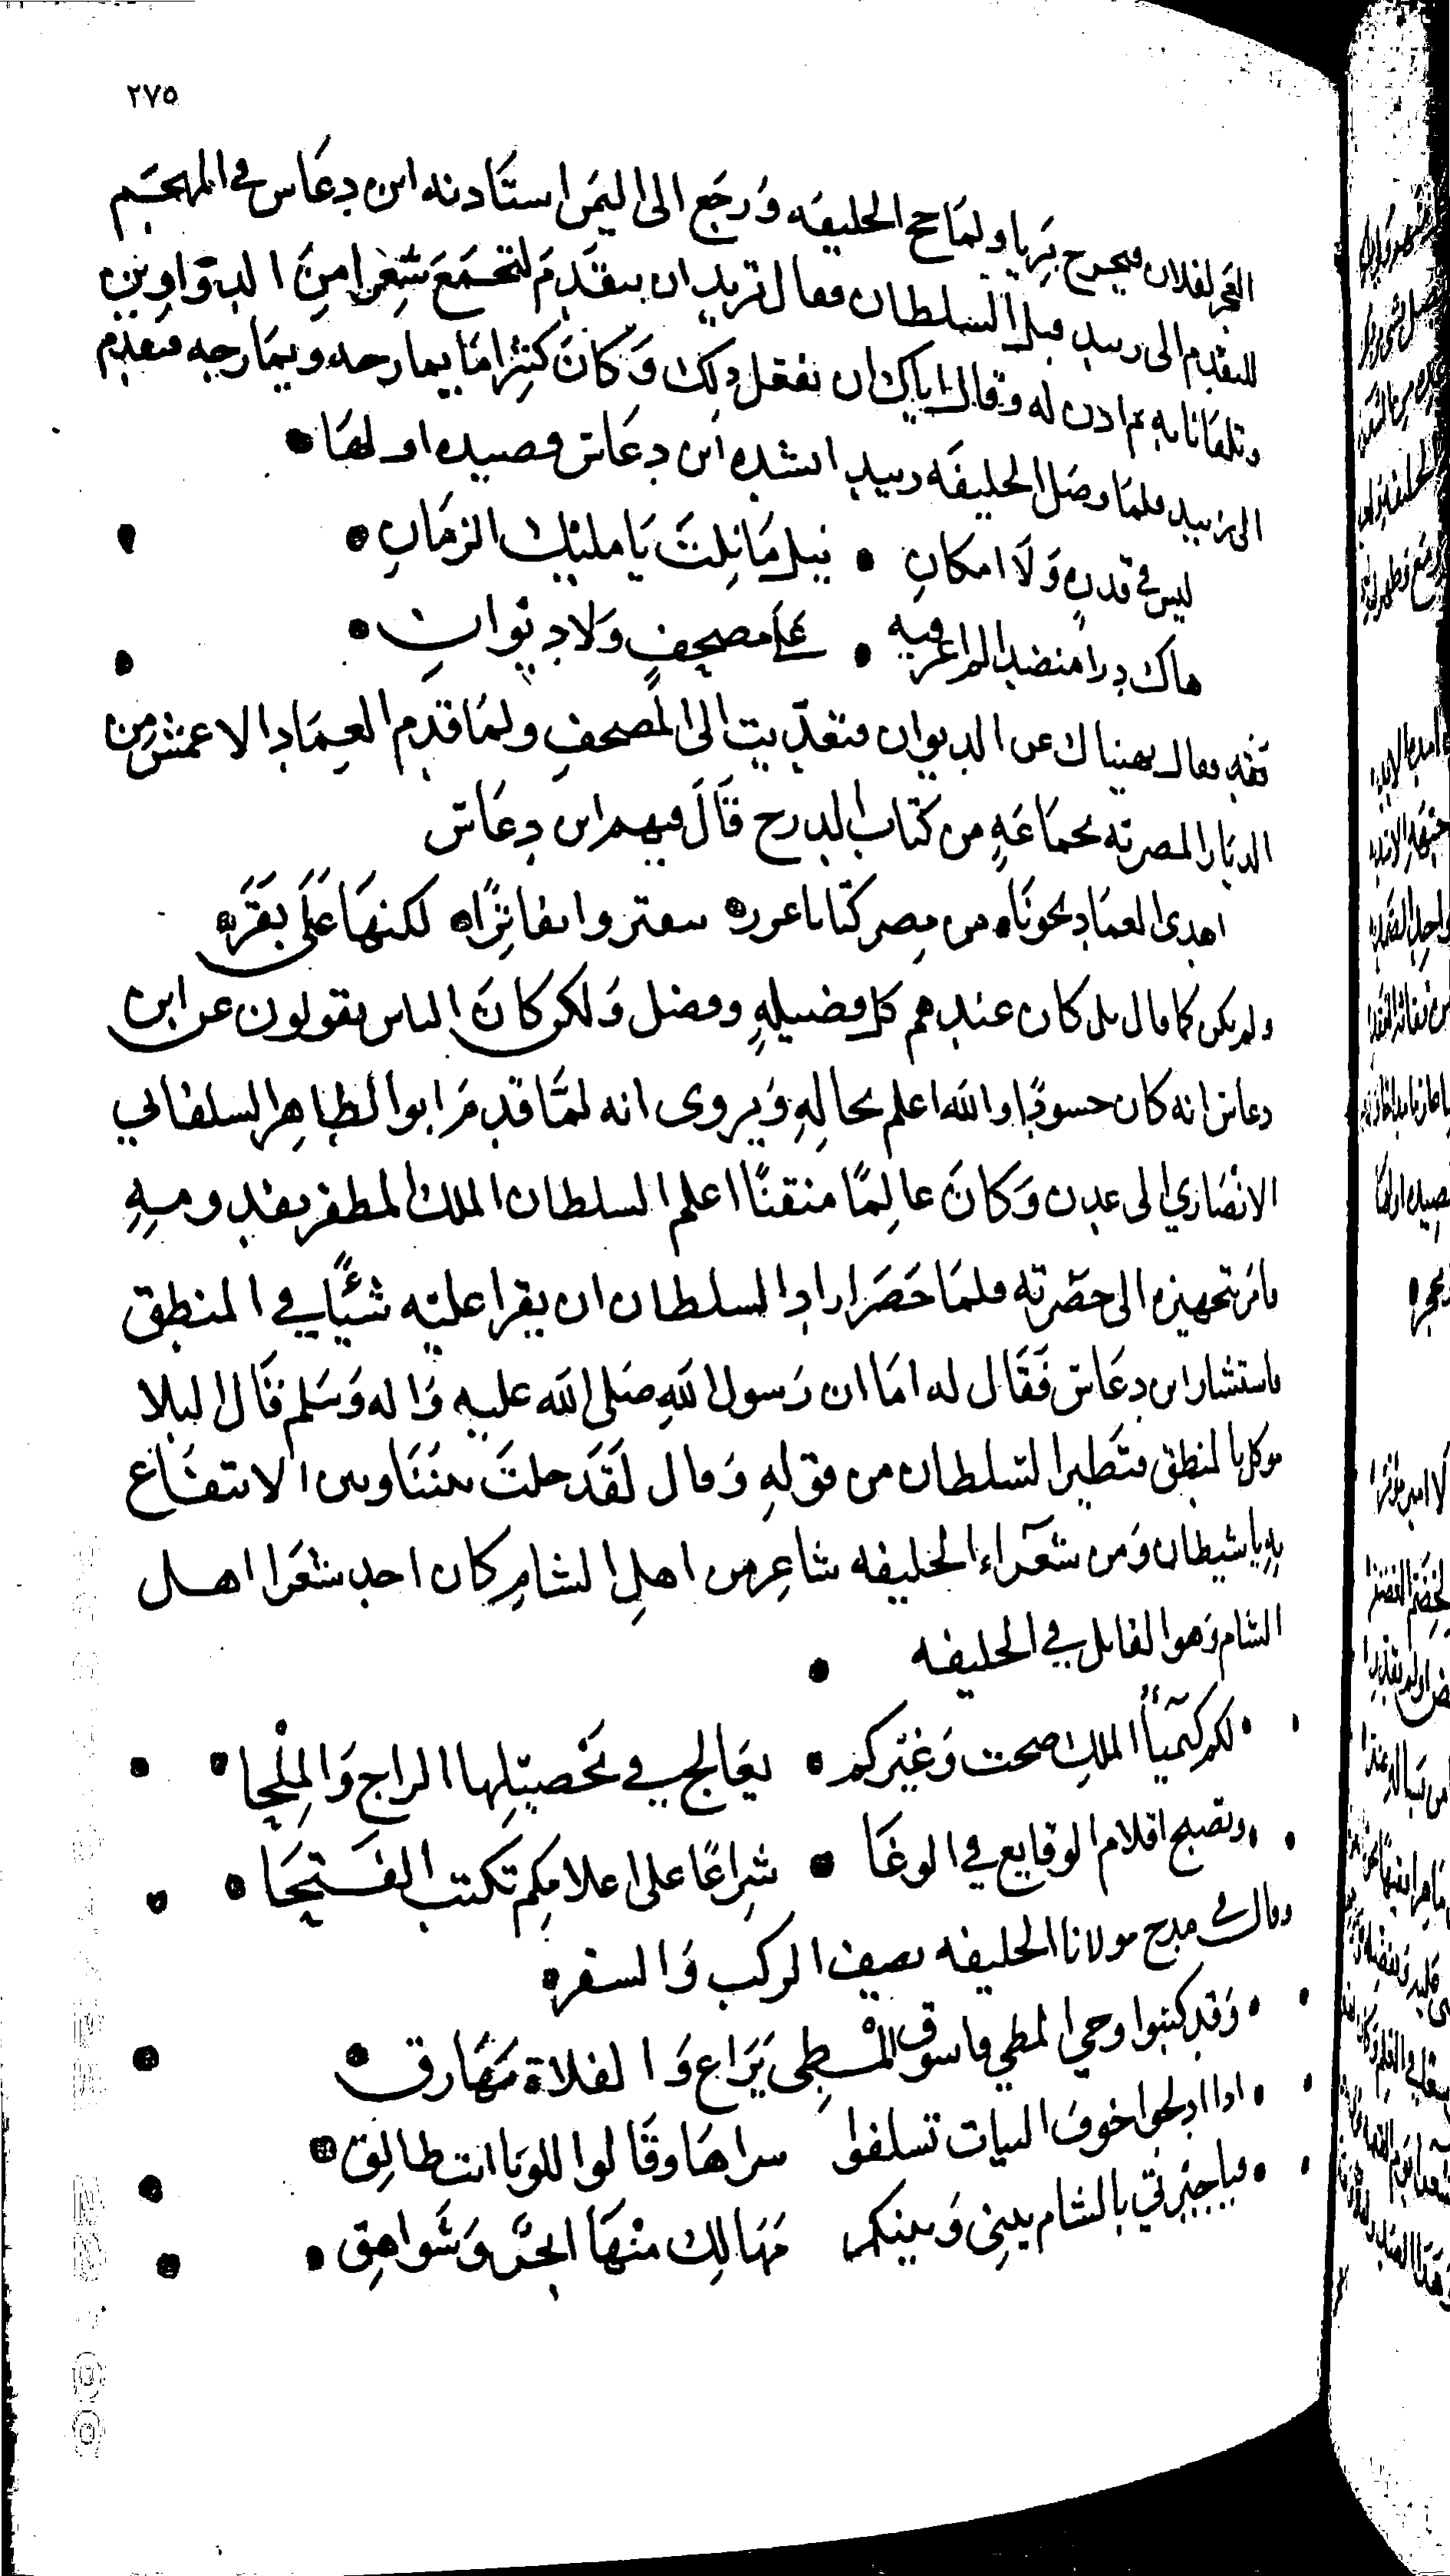 ٢٧٥
الفجر لفلان فيخرج بريا ولما حج الخليفه وَرجَع الى اليمَن استَادنه ابن دعَاس في المهجَم
للتقدم الى زبيد قبل السلطان فقال تريد ان يتقَدمَ لتجمَع شعرا منَ الدوَاوين
وتلقانا به ثم اذن له وقال اياك ان تفعل ذلك وَكانَ كثيرا مَا يمازحه ويمَازحه فتقدم
الى زبيد فلما وصَل الخليفَه زبيد انشده ابن دعَاس قصيده اولهَا
ليس في قدرةٍ وَلَا امكانِ • نيل مَا نِلتَ يَا مليك الزمَانِ
هاك درا منضدا لم اغر فيه • على مصحفٍ ولا ديوانِ
فقال بهيناك عن الديوان فتعدّيت الى المصحفِ ولمَا قدم العمَاد الاعمش من
الديَار المصريه بجمَاعَةٍ من كتاب الدرج قَالَ فيهم ابن دعَاس
اهدى العمَاد نحونَا من مصر كتابا عرره سفتروا نفايرًا لكنهَا عَلَى بَقَرَه
ولم يكن كما قال بل كان عندهم كل فضيلهٍ وفضل وَلكن كانَ الناس يقولون عن ابن
دعاس انه كان حسودًا والله اعلم بحالهِ وَيروى انه لمَّا قدمَ ابوا لطاهر السلفاني
الانصَاري الى عدن وَكانَ عالمًا متقنًا اعلم السلطان الملك المظفر بقدومهِ
فامَر بتجهيزه الى حضرته فلمَا حَضَر اراد السلطان ان يقرا عليه شيًّا في المنطق
فاستشار ابن دعَاس فَقَال له امَا ان رَسول اللهِ صَلى الله عليه وَاله وَسَلم قَال البلا
موكل بالمنطق فتَطير السلطان من قولهِ وَقال لَقَد حلتَ بيننَا وبين الانتفَاع
بهِ يا شيطان وَمن شعَراء الخليفه شاعِر من اهلِ الشامِ كان احد شعَرا اهل
الشام وَهوا لقايل في الخليفه
لكم كيميآء الملكِ صحت وَغيركم • يعَالج في تحَصيلها الراج وَالمِلحا
وتصبح اقلام الوقايع في الوغَا • شراعًا على اعلامِكم تكتب الفَتحَا
وقال في مدح مولانا الخليفه يصف الركب وَالسفر
وَقد كتبوا وحي المطي فاسوق المطى يَرَاع وَالفلاة مهَارق
اذا ادلجوا خوفَ البيات تسلفوا سراهَا وقَالوا للوبَا انت طالِق
فيا جيرتي بالشام بيني وَبينكم مَهَالِك منهَا البحر وَشَواهق